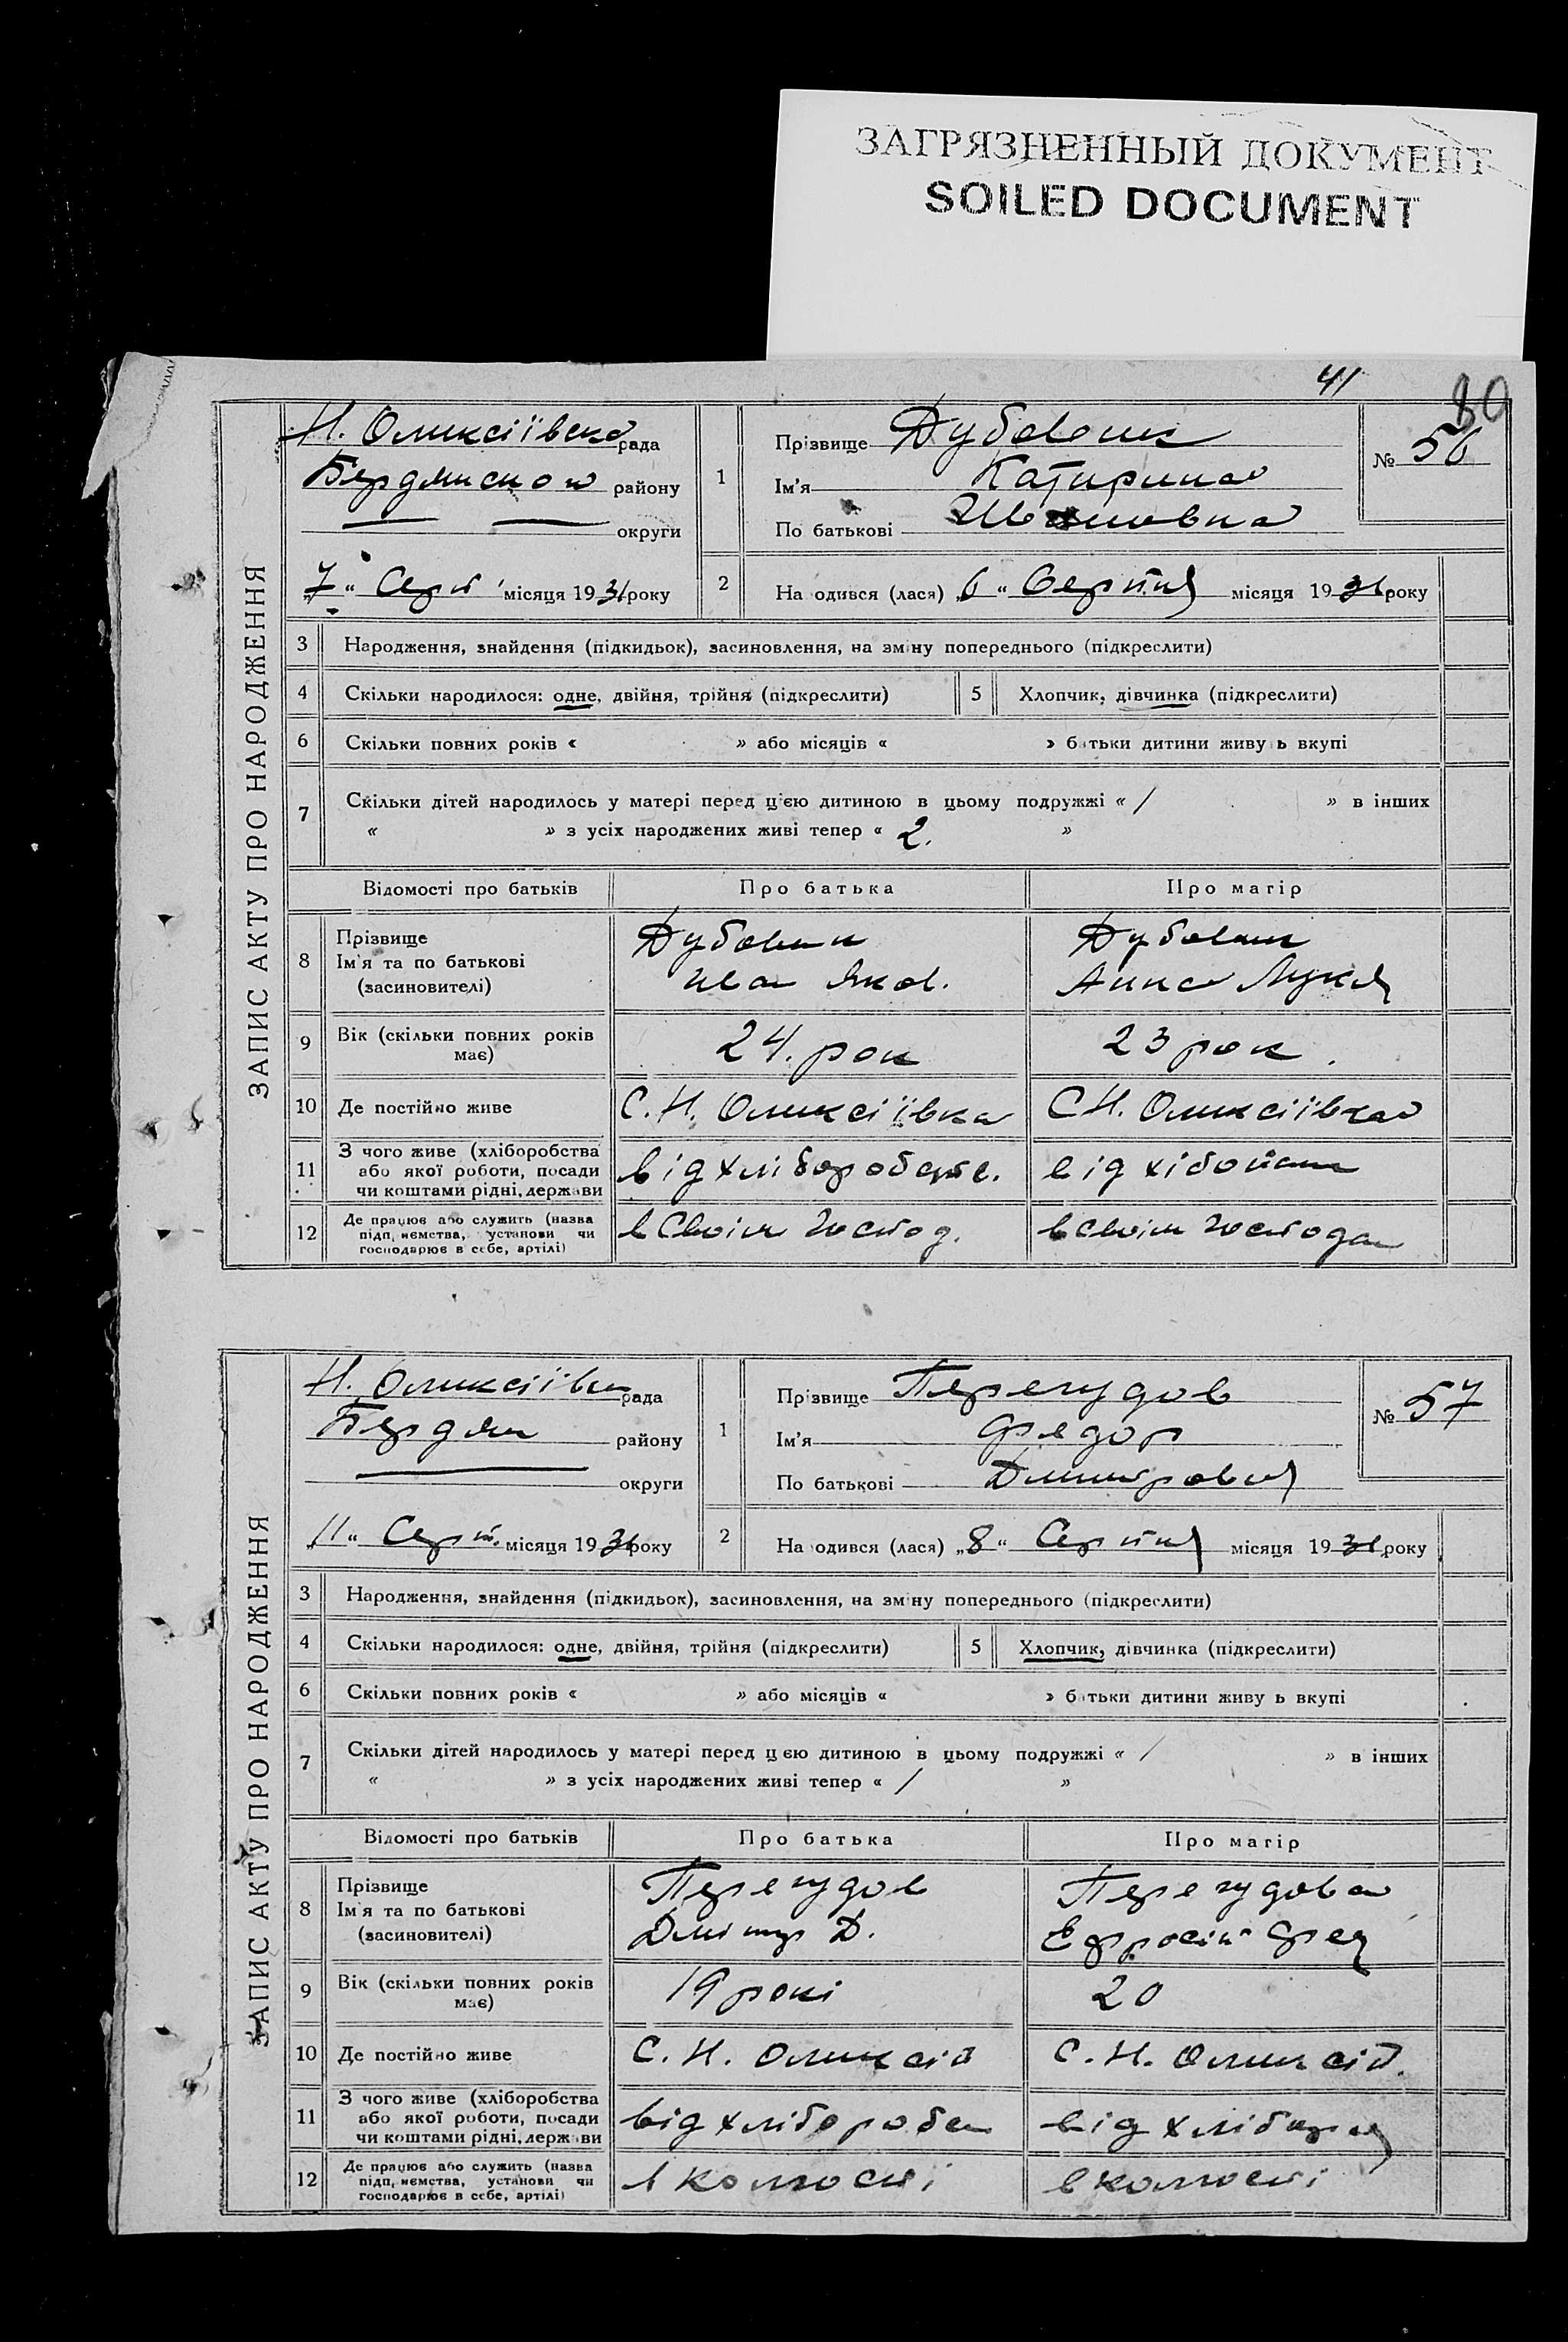 ЗАГРЯЗНЕННЫЙ ДОКУМЕНТ
SOILED DOCUMENT
41
80
ЗАПИС АКТУ ПРО НАРОДЖЕННЯ
Н. Оликсіївска рада
Бердянском району
округи
„7“ Серп місяця 1931 року
1 Прізвище Дубовик
Ім'я Катирина
По батькові Ивановна
№ 56
2 На одився (лася) „6“ Серпня місяця 1931 року
3 Народження, знайдення (підкидьок), засиновлення, на зміну попереднього (підкреслити)
4 Скільки народилося: одне, двійня, трійня (підкреслити) 5 Хлопчик, дівчинка (підкреслити)
6 Скільки повних років « » або місяців « » батьки дитини живу ь вкупі
7 Скільки дітей народилось у матері перед цією дитиною в цьому подружжі « / » в інших
« » з усіх народжених живі тепер « 2. »
Відомості про батьків Про батька Про матір
8 Прізвище Дубовик Дубовик
Ім'я та по батькові Иван Яков. Анна Лукя
(засиновителі)
9 Вік (скільки повних років має) 24. рок 23 рок.
10 Де постійно живе С. Н. Оликсіївка С Н. Оликсіївка
11 З чого живе (хліборобства
або якої роботи, посади від хліборобств. від
чи коштами рідні, держави
12 Де працює або служить (назва
підприємства, установи чи в своім господ. в своім господа
господарює в себе, артілі)
ЗАПИС АКТУ ПРО НАРОДЖЕННЯ
Н. Оликсіївк рада
Бердян району
округи
„11“ Серп. місяця 1931 року
1 Прізвище Перегудов
Ім'я Фядор
По батькові Дмитрович
№ 57
2 На одився (лася) „8“ Серпня місяця 1931 року
3 Народження, знайдення (підкидьок), засиновлення, на зміну попереднього (підкреслити)
4 Скільки народилося: одне, двійня, трійня (підкреслити) 5 Хлопчик, дівчинка (підкреслити)
6 Скільки повних років « » або місяців « » батьки дитини живу ь вкупі
7 Скільки дітей народилось у матері перед цією дитиною в цьому подружжі « / » в інших
« » з усіх народжених живі тепер « / »
Відомості про батьків Про батька Про матір
8 Прізвище Перегудов Перегудова
Ім'я та по батькові Дмітр Д. Ефросін Фед
(засиновителі)
9 Вік (скільки повних років має) 19 рокі 20
10 Де постійно живе С. Н. Оликсій С. Н. Оликсій.
11 З чого живе (хліборобства
або якої роботи, посади від хлібороб від
чи коштами рідні, держави
12 Де працює або служить (назва
підприємства, установи чи в колгоспі в колгоспі
господарює в себе, артілі)